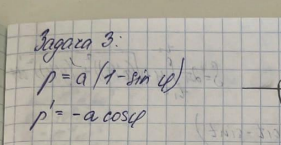 Задача 3:
ρ = a (1 - sin φ)
ρ' = -a cosφ